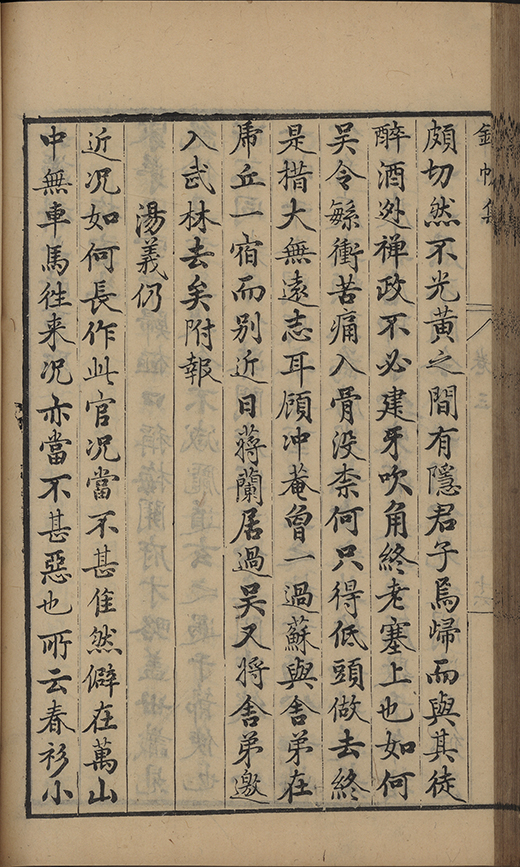 錦帆集 卷三
頗切然不光黃之間有隱君子焉歸而與其徒
醉酒処禅政不必建牙吹角終老塞上也如何
吳令繇衝苦痛入骨没柰何只得低頭做去終
是措大無遠志耳顧冲菴曾一過蘇與舍弟在
虎丘一宿而別近日蔣蘭居過吳又将舍弟邀
入武林去矣附報
湯義仍
近况如何長作此官况當不甚佳然僻在萬山
中無車馬徃来况亦當不甚惡也所云春衫小